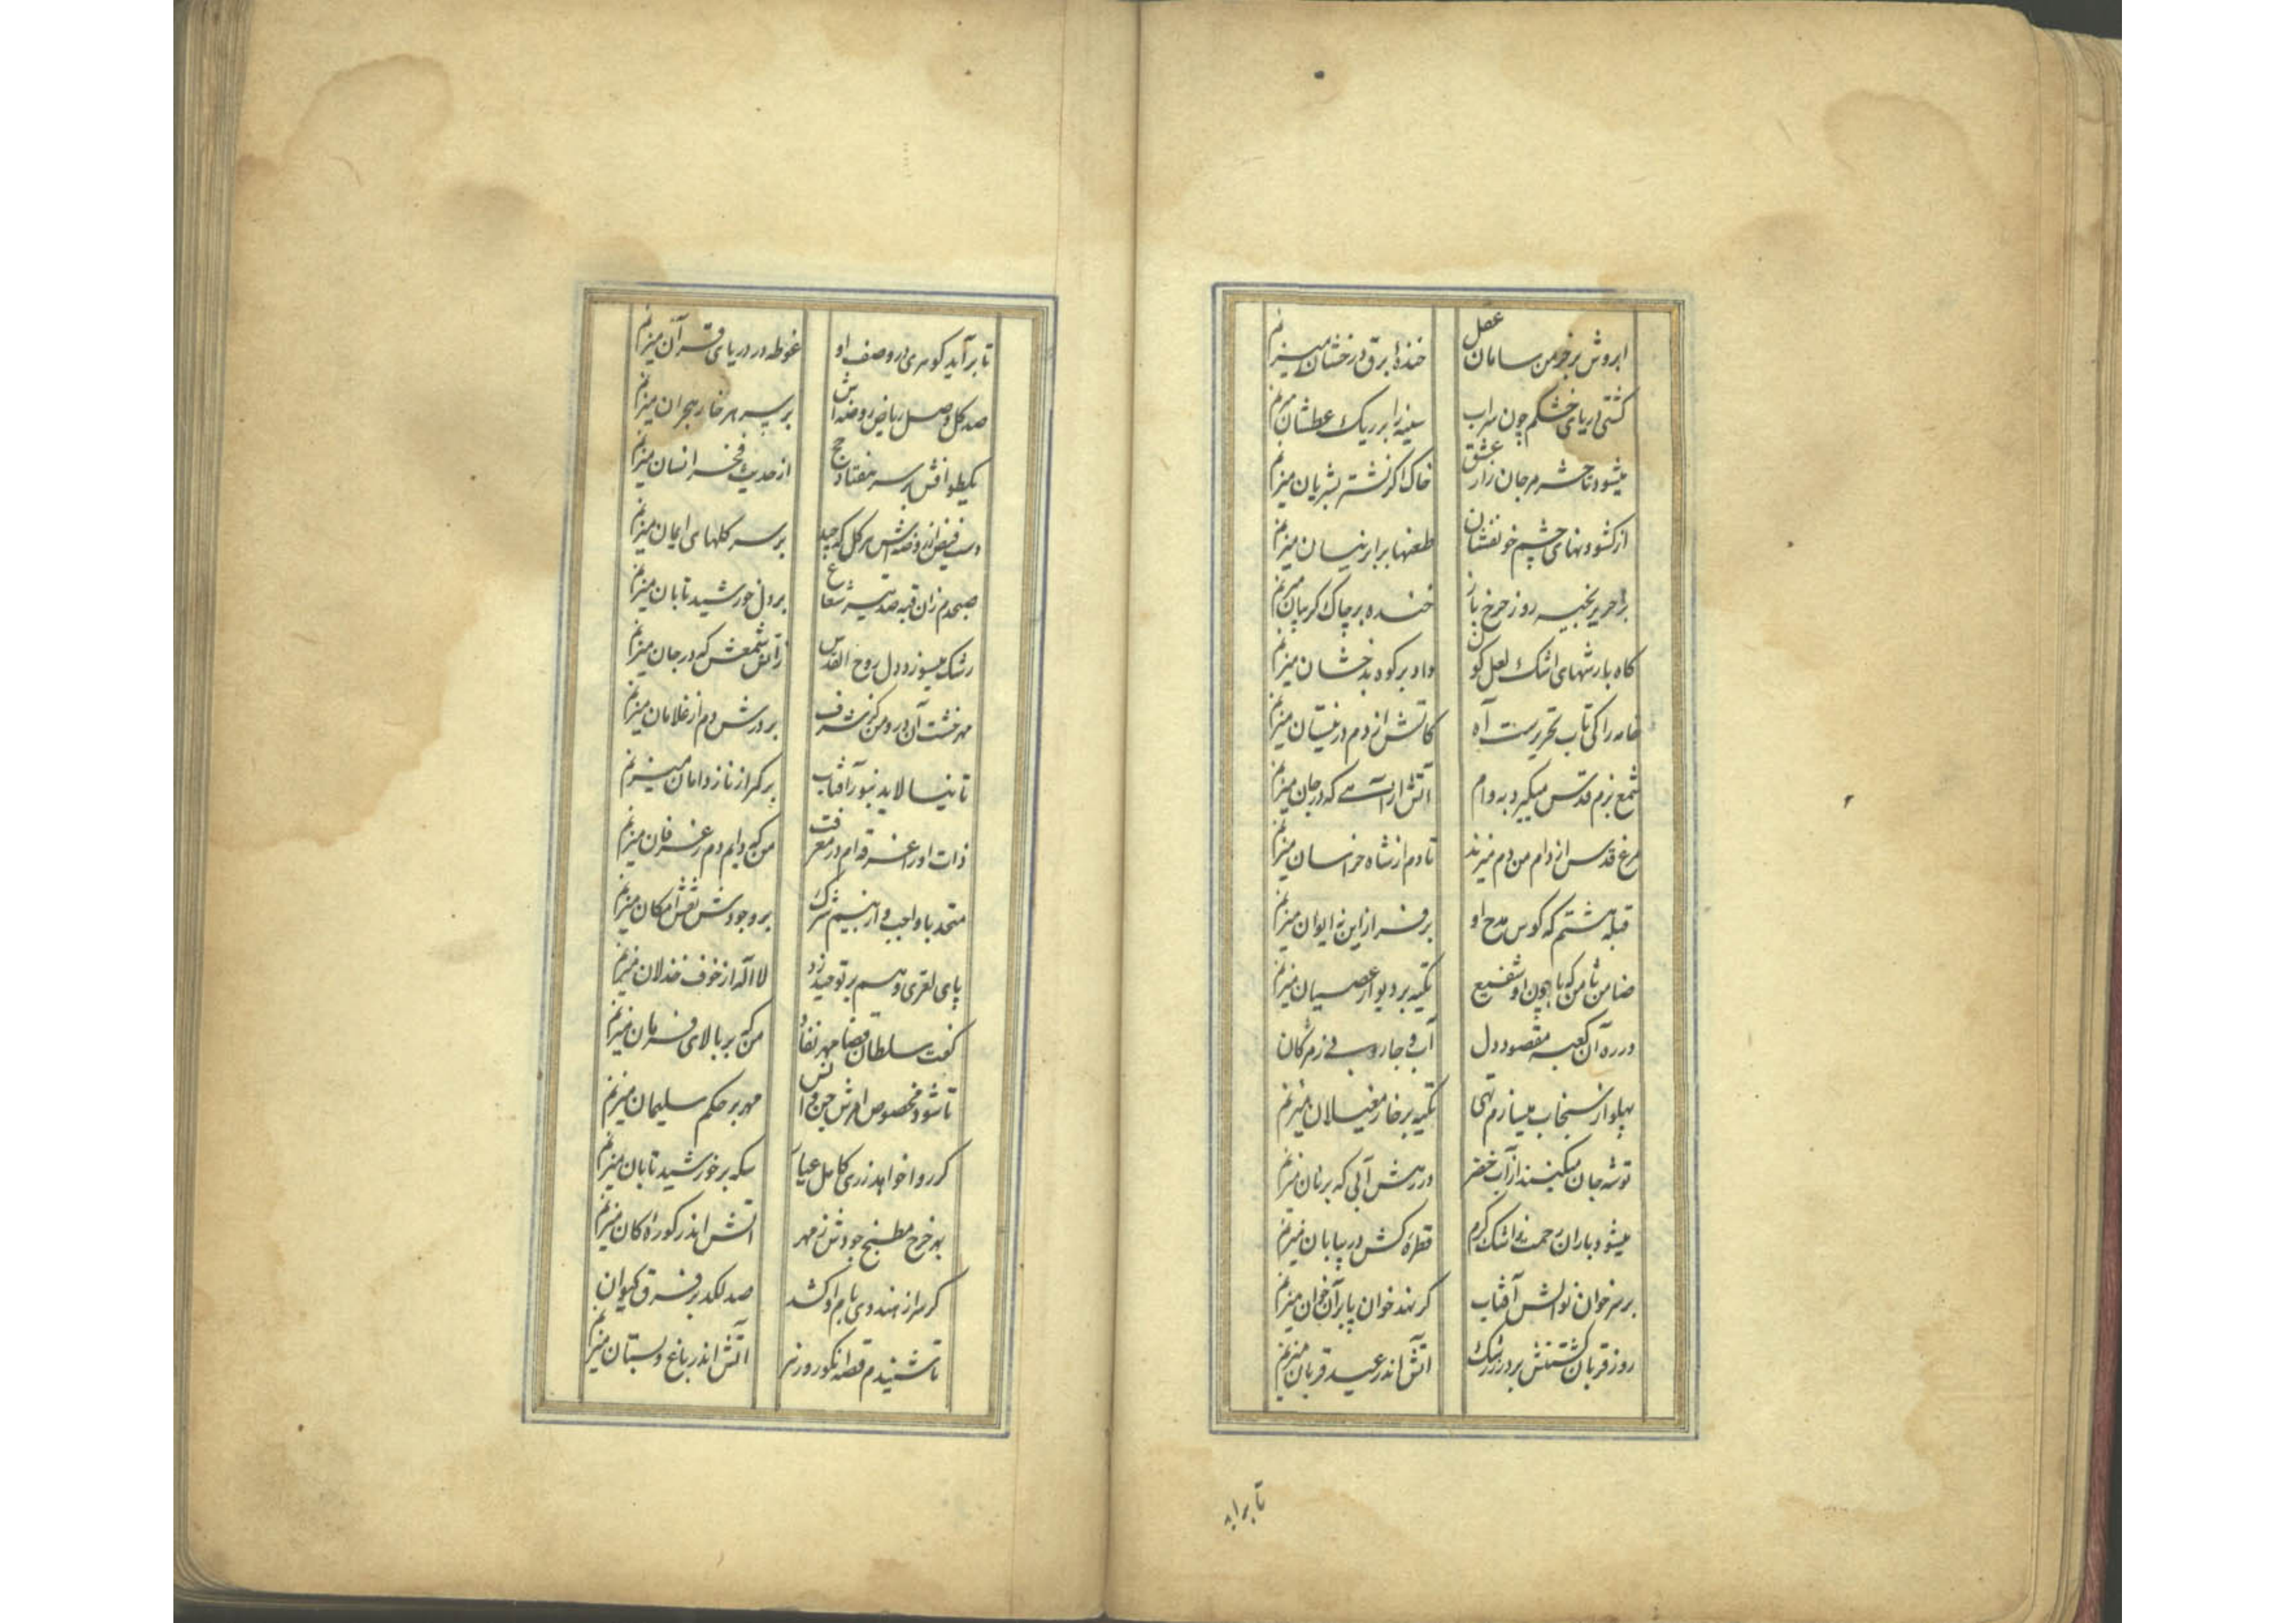 ابروش بر خرمن سامان عقل خندهٔ برق درخشان میزنم
کشتی دریای خشکم چون سراب سینه را بر ریک عطشان میزنم
میشود تا حشر مرجان زار عشق خاک اکر نشتر بشریان میزنم
از کشودنهای چشم خونفشان طعنها بر ابر نیسان میزنم
بخیه روز چرخ باز خنده بر چاک کریبان میزنم
کاه بارشهای اشک لعل کون داد بر کوه بدخشان میزنم
خامه را کی تاب تحریرست آه کاتش از دم در نیستان میزنم
شمع بزم قدس میکیرد به وام آتش ار آهی که در جان میزنم
مرغ قدس از دام من دم میزند تا دم از شاه خراسان میزنم
قبله هشتم که کوس مدح او بر فراز این نه ایوان میزنم
ضامن ثامن که با چون او شفیع تکیه بر دیوار عصیان میزنم
در ره آن کعبه مقصود دل آب و جاروبی ز مژکان
پهلو از سنجاب میسازم تهی تکیه بر خار مغیلان میزنم
توشه جان میکنند از آب خضر در رهش آبی که بر نان میزنم
میشود باران رحمت ز اشک کرم قطره کش در بیابان میزنم
بر سر خوان نوالش آفتاب کر نهد خوان پا بر آن خوان میزنم
روز قربان کشتنش بر در ز رشک آتش اندر عید قربان میزنم
تا براید
تا برآید کوهری در وصف او غوطه در دریای قرآن میزنم
صد کل وصل ریاض روضه اش بر سر هر خار هجران میزنم
یکطوافش بر سر هفتاد حج از حدیث فخر انسان میزنم
دست فیض از روضه اش هر کل که چید بر سر کلهای ایمان میزنم
صبحدم زان قبه صد تیر شعاع بر دل خورشید تابان میزنم
رشک میسوزد دل روح القدس ز آتش شمعش که در جان میزنم
مهر خشت آن در و من کز شرف بر درش دم از غلامان میزنم
تا نیالاید بنور آفتاب بر کمر از ناز دامان میزنم
ذات او را غرقه ام در معرفت من که دایم دم ز عرفان میزنم
متحد با واجب و از بیم شرک بر وجودش نقش امکان میزنم
پای لغزی وهم بر توحید زد لا اله از خوف خذلان میزنم
کفت سلطان قضا مهر نفاذ من که بر بالای فرمان میزنم
تا شود مخصوص امرش جن و انس مهر بر حکم سلیمان میزنم
کر روا خواهد زری کامل عیار سکه بر خورشید تابان میزنم
بهر خرج مطبخ جودش ز مهر آتش اندر کورهٔ کان میزنم
کر سر از هندوی بام او کشد صد لکد بر فرق کیوان میزنم
تا شنیدم قصه انکور و زهر آتش اندر باغ و بستان میزنم